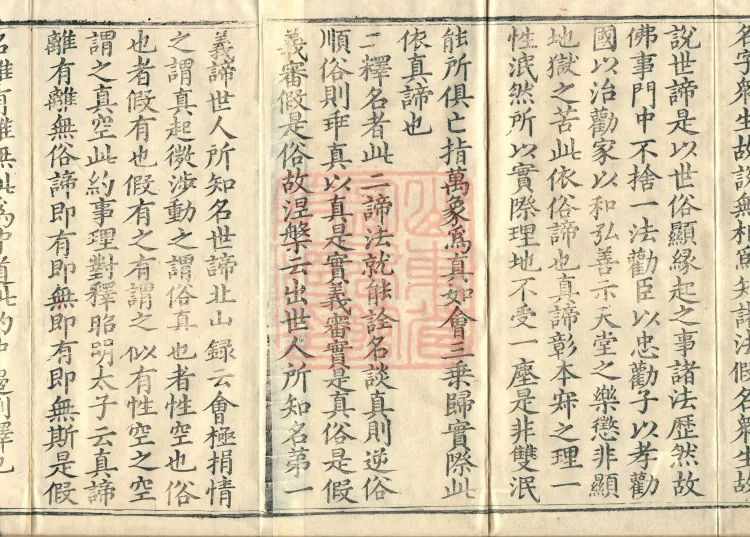 說世諦是以世俗顯緣起之事諸法歷然故
佛事門中不捨一法勸臣以忠勸子以孝勸
國以治勸家以和弘善示天堂之樂懲非顯
地獄之苦此依俗諦也真諦彰本寂之理一
性泯然所以實際理地不受一塵是非雙泯
能所俱亡指萬象爲真如會三乗歸實際此
依真諦也
二釋名者此二諦法就能詮名談真則逆俗
順俗則乖真以真是實義審實是真俗是假
義審假是俗故涅槃云出世人所知名第一
義諦世人所知名世諦北山録云會極捐情
之謂真起微涉動之謂俗真也者性空也俗
也者假有也假有之有謂之似有性空之空
謂之真空此約事理對釋昭明太子云真諦
離有離無俗諦即有即無即有即無斯是假